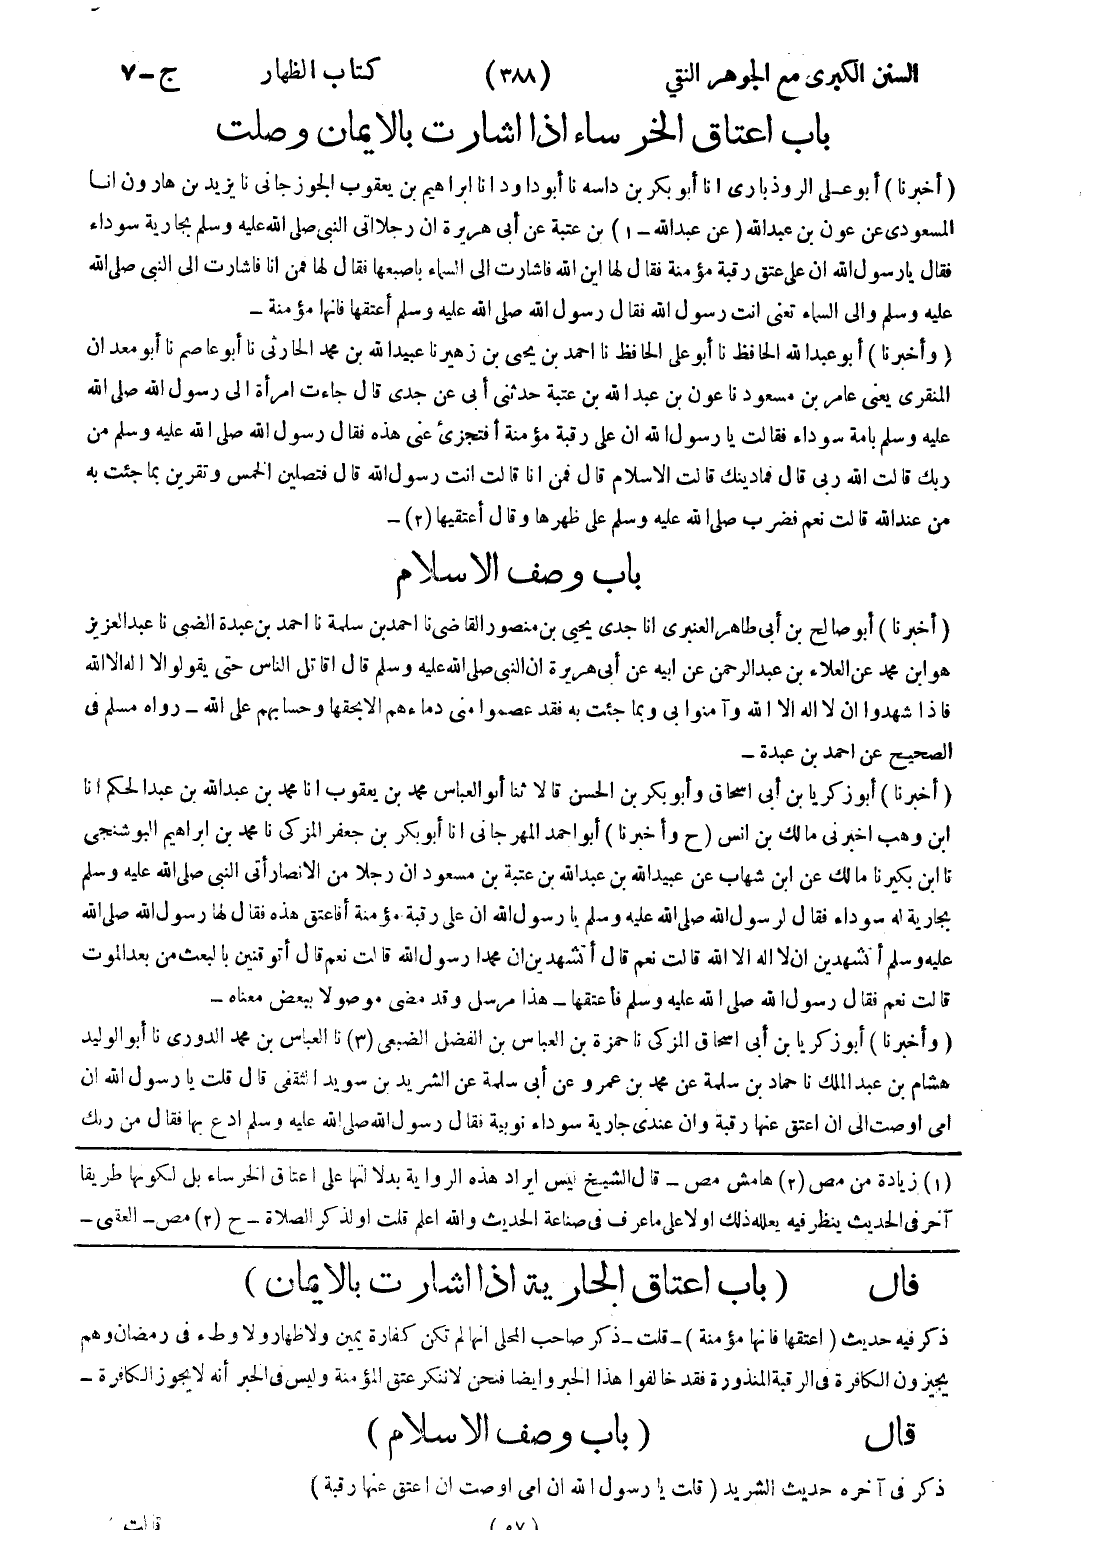 السنن الكبرى مع الجوهر النقي (٣٨٨) كتاب الظهار ج-٧
باب اعتاق الخرساء اذا اشارت بالايمان وصلت
(أخبرنا) أبو على الروذبارى انا أبو بكر بن داسه نا أبو داود انا ابراهيم بن يعقوب الجوزجانى نا يزيد بن هارون انا
المسعودى عن عون بن عبدالله (عن عبدالله - ١) بن عتبة عن أبى هريرة ان رجلا اتى النبى صلى الله عليه وسلم بجارية سوداء
فقال يا رسول الله ان على عتق رقبة مؤمنة فقال لها اين الله فاشارت الى السماء باصبعها فقال لها فمن انا فاشارت الى النبى صلى الله
عليه وسلم والى السماء تعنى انت رسول الله فقال رسول الله صلى الله عليه وسلم أعتقها فانها مؤمنة -
(وأخبرنا) أبو عبدالله الحافظ نا أبو على الحافظ نا احمد بن يحيى بن زهير نا عبيدالله بن محمد الحارثى نا أبو عاصم نا أبو معدان
المنقرى يعنى عامر بن مسعود نا عون بن عبدالله بن عتبة حدثنى أبى عن جدى قال جاءت امرأة الى رسول الله صلى الله
عليه وسلم بامة سوداء فقالت يا رسول الله ان على رقبة مؤمنة أفتجزئ عنى هذه فقال رسول الله صلى الله عليه وسلم من
ربك قالت الله ربى قال فمادينك قالت الاسلام قال فمن انا قالت انت رسول الله قال فتصلين الخمس وتقرين بما جئت به
من عندالله قالت نعم فضرب صلى الله عليه وسلم على ظهرها وقال أعتقيها (٢) -
باب وصف الاسلام
(أخبرنا) أبو صالح بن أبى طاهر العنبرى انا جدى يحيى بن منصور القاضى نا احمد بن سلمة نا احمد بن عبدة الضبى نا عبدالعزيز
هو ابن محمد عن العلاء بن عبدالرحمن عن ابيه عن أبى هريرة ان النبى صلى الله عليه وسلم قال اقاتل الناس حتى يقولوا لا اله الا الله
فاذا شهدوا ان لا اله الا الله وآمنوا بى وبما جئت به فقد عصموا منى دماءهم الا بحقها وحسابهم على الله - رواه مسلم فى
الصحيح عن احمد بن عبدة -
(أخبرنا) أبو زكريا بن أبى اسحاق وأبو بكر بن الحسن قالا ثنا أبو العباس محمد بن يعقوب انا محمد بن عبدالله بن عبدالحكم انا
ابن وهب اخبرنى مالك بن انس (ح وأخبرنا) أبو احمد المهرجانى انا أبو بكر بن جعفر المزكى نا محمد بن ابراهيم البوشنجى
نا ابن بكير نا مالك عن ابن شهاب عن عبيدالله بن عبدالله بن عتبة بن مسعود ان رجلا من الانصار أتى النبى صلى الله عليه وسلم
بجارية له سوداء فقال لرسول الله صلى الله عليه وسلم يا رسول الله ان على رقبة مؤمنة أفاعتق هذه فقال لها رسول الله صلى الله
عليه وسلم أتشهدين ان لا اله الا الله قالت نعم قال أتشهدين ان محمدا رسول الله قالت نعم قال أتوقنين بالبعث من بعد الموت
قالت نعم فقال رسول الله صلى الله عليه وسلم فأعتقها - هذا مرسل وقد مضى موصولا ببعض معناه -
(وأخبرنا) أبو زكريا بن أبى اسحاق المزكى نا حمزة بن العباس بن الفضل الضبعى (٣) نا العباس بن محمد الدورى نا أبو الوليد
هشام بن عبد الملك نا حماد بن سلمة عن محمد بن عمرو عن أبى سلمة عن الشريد بن سويد الثقفى قال قلت يا رسول الله ان
امى اوصت الى ان اعتق عنها رقبة وان عندى جارية سوداء نوبية فقال رسول الله صلى الله عليه وسلم ادع بها فقال من ربك
(١) زيادة من مص (٢) هامش مص - قال الشيخ ليس ايراد هذه الرواية بدلا لتها على اعتاق الخرساء بل لكونها طريقا
آخر فى الحديث ينظر فيه يعلله ذلك اولا على ما عرف فى صناعة الحديث والله اعلم قلت او لذكر الصلاة - ح (٣) مص - العقبى -
قال (باب اعتاق الجارية اذا اشارت بالايمان)
ذكر فيه حديث (اعتقها فانها مؤمنة) - قلت - ذكر صاحب المحلى انها لم تكن كفارة يمين ولا ظهار ولا وطء فى رمضان وهم
يجيزون الكافرة فى الرقبة المنذورة فقد خالفوا هذا الخبر وايضا فنحن لا ننكر عتق المؤمنة وليس فى الخبر أنه لا يجوز الكافرة -
قال (باب وصف الاسلام)
ذكر فى آخره حديث الشريد (قلت يا رسول الله ان امى اوصت ان اعتق عنها رقبة)
قالت